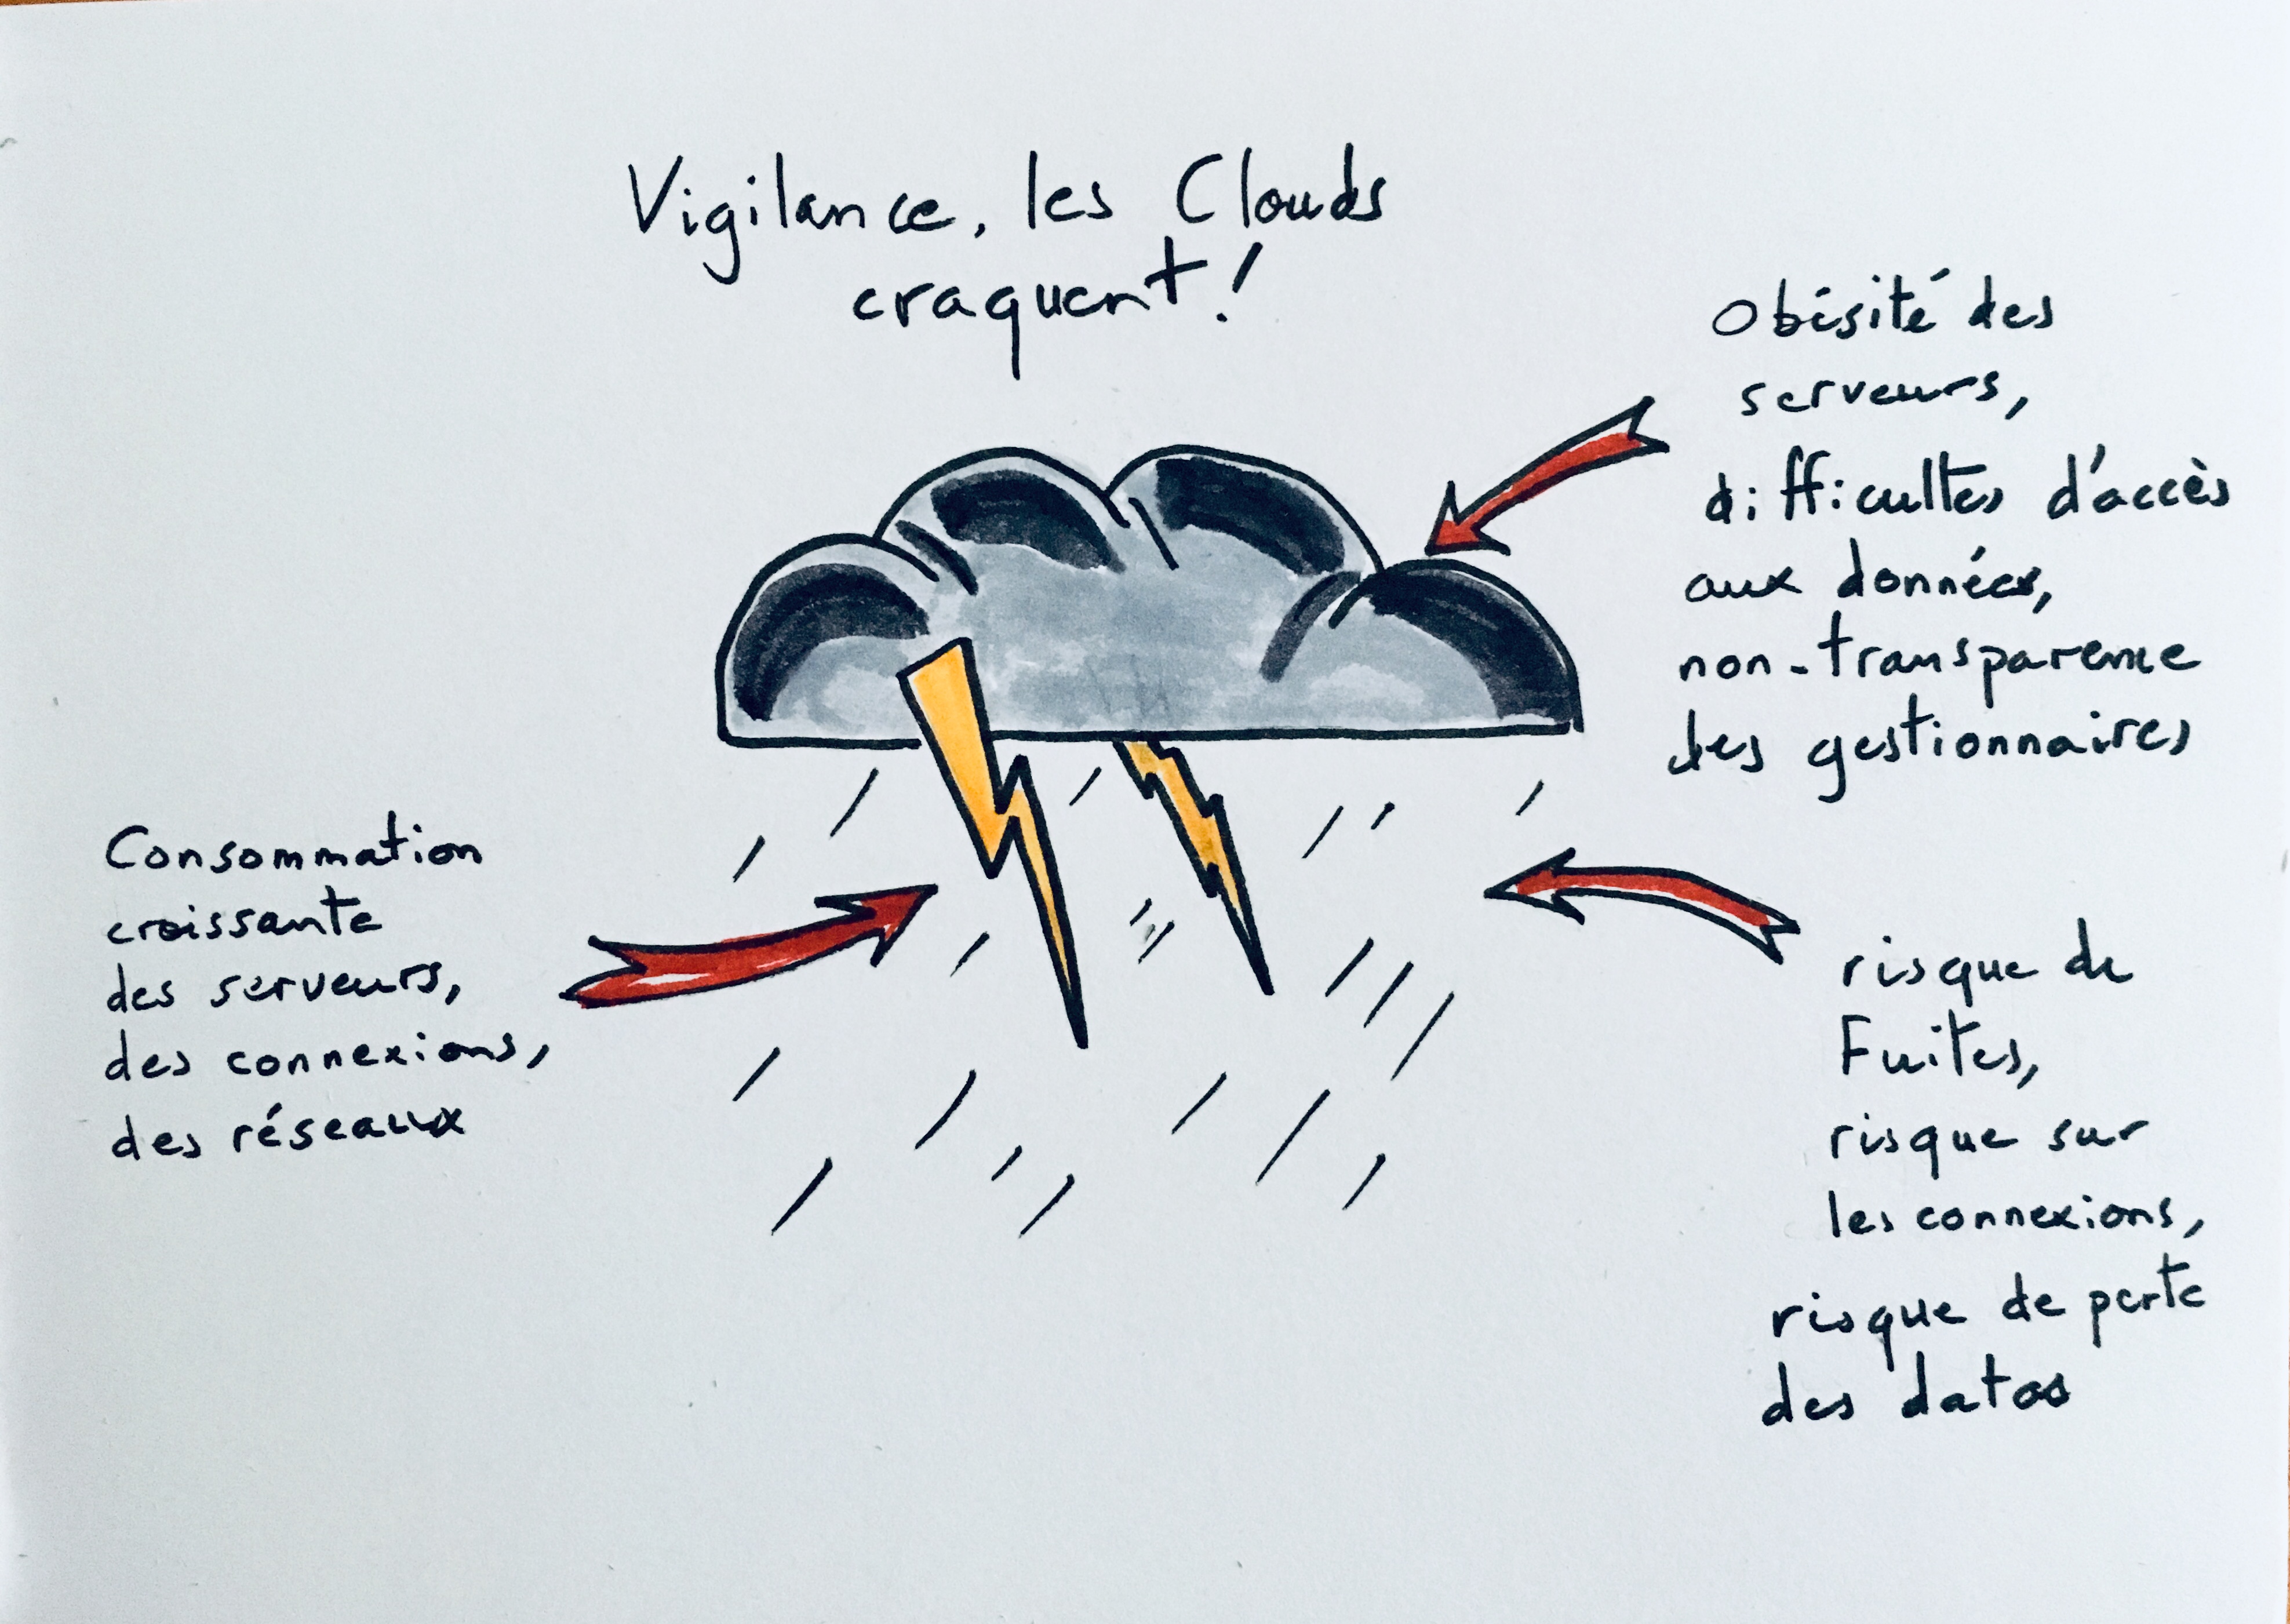 Vigilance, les Clouds
craquent!
Obésité des
serveurs,
difficultes d'accès
aux données,
non-transparence
des gestionnaires
Consommation
croissante
des serveurs,
des connexions,
des réseaux
risque de
Fuites,
risque sur
les connexions,
risque de perte
des datas